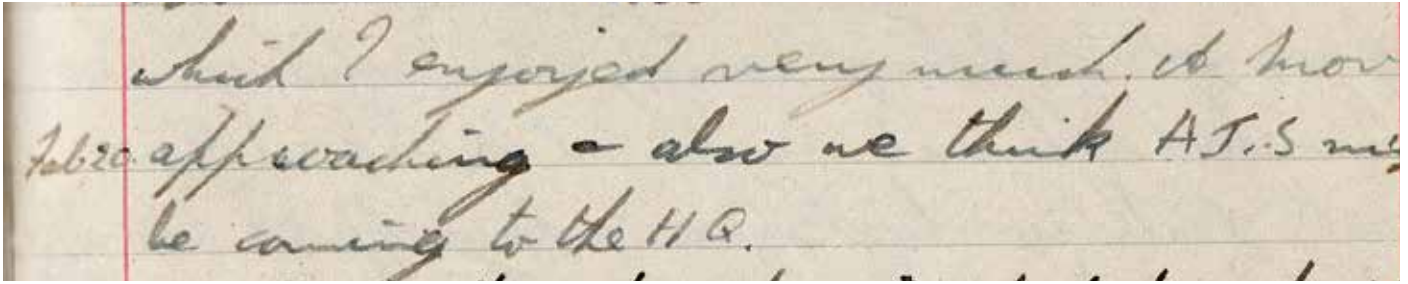 which I enjoyed very much. A mov
Feb 20. approaching - also we think A.J.S
be coming to the H Q.